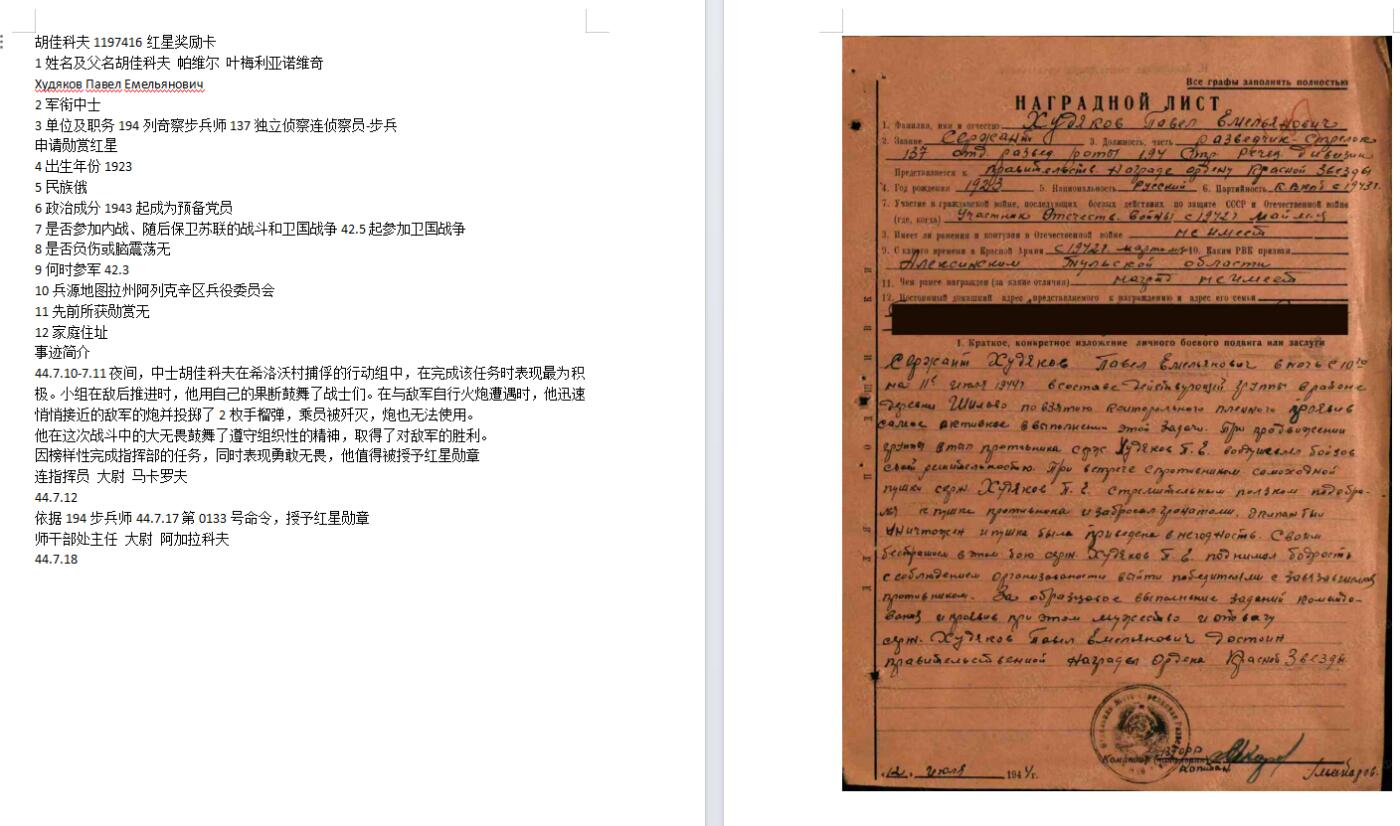 胡佳科夫 1197416 红星奖励卡
1 姓名及父名胡佳科夫 帕维尔 叶梅利亚诺维奇
Худяков Павел Емельянович
2 军衔中士
3 单位及职务 194 列奇察步兵师 137 独立侦察连侦察员-步兵
申请勋赏红星
4 出生年份 1923
5 民族俄
6 政治成分 1943 起成为预备党员
7 是否参加内战、随后保卫苏联的战斗和卫国战争 42.5 起参加卫国战争
8 是否负伤或脑震荡无
9 何时参军 42.3
10 兵源地图拉州阿列克辛区兵役委员会
11 先前所获勋赏无
12 家庭住址
事迹简介
44.7.10-7.11 夜间，中士胡佳科夫在希洛沃村捕俘的行动组中，在完成该任务时表现最为积
极。小组在敌后推进时，他用自己的果断鼓舞了战士们。在与敌军自行火炮遭遇时，他迅速
悄悄接近的敌军的炮并投掷了 2 枚手榴弹，乘员被歼灭，炮也无法使用。
他在这次战斗中的大无畏鼓舞了遵守组织性的精神，取得了对敌军的胜利。
因榜样性完成指挥部的任务，同时表现勇敢无畏，他值得被授予红星勋章
连指挥员 大尉 马卡罗夫
44.7.12
依据 194 步兵师 44.7.17 第 0133 号命令，授予红星勋章
师干部处主任 大尉 阿加拉科夫
44.7.18
Все графы заполнять полностью
НАГРАДНОЙ ЛИСТ
1. Фамилия, имя и отчество Худяков Павел Емельянович
2. Звание Сержант 3. Должность, часть разведчик-стрелок
137 отд. развед роты 194 Стр. Речец. дивизии
Представляется к правительств. награде ордену Красной Звезды
4. Год рождения 1923 5. Национальность Русский 6. Партийность с 1943г.
7. Участие в гражданской войне, последующих боевых действиях по защите СССР и Отечественной войне
(где, когда) Участник Отечеств. войны с 1942г
Имеет ли ранения и контузии в Отечественной войне не имеет
9. С какого времени в Красной Армии с 1942г. 10. Каким РВК призван
Алексинским Тульской области
11. Чем ранее награжден (за какие отличия) наград не имеет
12. Постоянный домашний адрес представляемого к награждению и адрес его семьи
I. Краткое, конкретное изложение личного боевого подвига или заслуги
Сержант Худяков Павел Емельянович в ночь с 10го
на 11е июля 1944г в составе действующей группы в районе
деревни Шилово по взятию контрольного пленного проявив
самое активное в выполнении этой задачи. При продвижении
группы в тыл противника серж. Худяков П. Е. воодушевлял бойцов
своей решительностью. При встрече с противником самоходной
пушки серж. Худяков П. Е. стремительным ползком подобра-
к пушке противника и забросал гранатами. Экипаж был
уничтожен и пушка была приведена в негодность. Своим
бесстрашием в этом бою серж. Худяков П. Е. поднимал бодрость
с соблюдением организованости выйти победителями с
противником. За образцовое выполнение заданий командо-
вания и проявив при этом мужество и отвагу
серж. Худяков Павел Емельянович достоин
правительственной награды Ордена Красной Звезды
Капитан
12. июля 1944г.